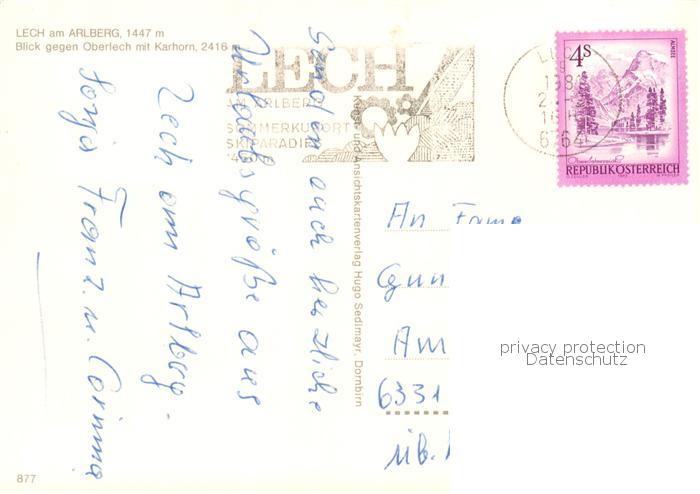 LECH am ARLBERG, 1447 m
Blick gegen Oberlech mit Karhorn, 2416
LECH
AM ARLBERG
SOMMERKURORT
SKIPARADIES
1980
6764
4S
ALMSEE
Oberösterreich
REPUBLIK ÖSTERREICH
Senden euch herzliche
Urlaubsgrüße aus
Lech am Arlberg.
Sonja Franz. u. Corinna
Kunst- und Ansichtskartenverlag Hugo Sedlmayr, Dornbirn
An Fam
Gün
Am
6331
üb.
privacy protection
Datenschutz
877